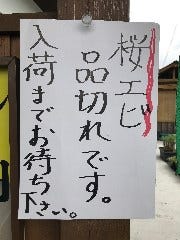 桜エビ
品切れです。
入荷までお待ち
下さい。